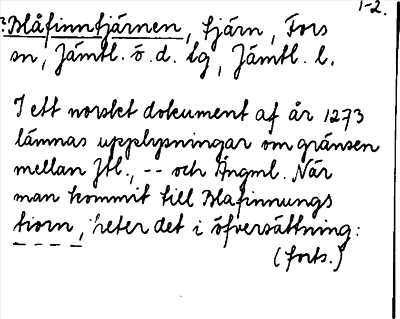 1-2.
?Blåfinntjärnen, tjärn, Fors
sn, Jämtl. ö. d. tg, Jämtl. l.
I ett norskt dokument af år 1273
lämnas upplysningar om gränsen
mellan Jtl., -- och Ångml. När
man kommit till Blafinnungs
tiorn, heter det i öfversättning:
(forts.)